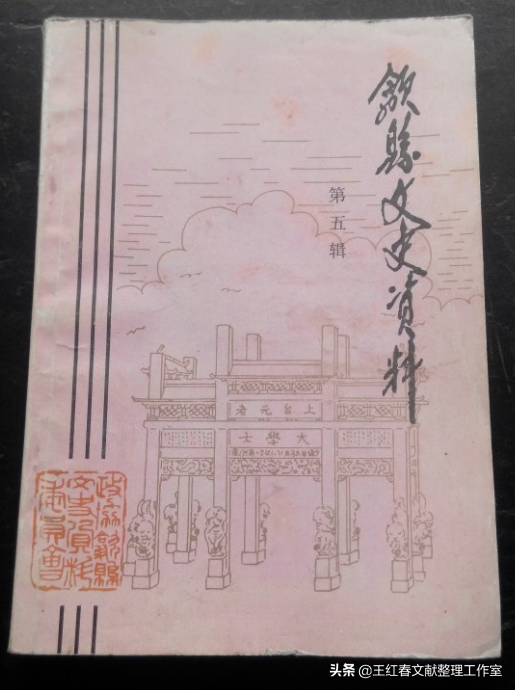 歙縣文史資料
第五辑
上台元老
大學士
政协歙縣
文史資料
委員會
头条 @王红春文献整理工作室